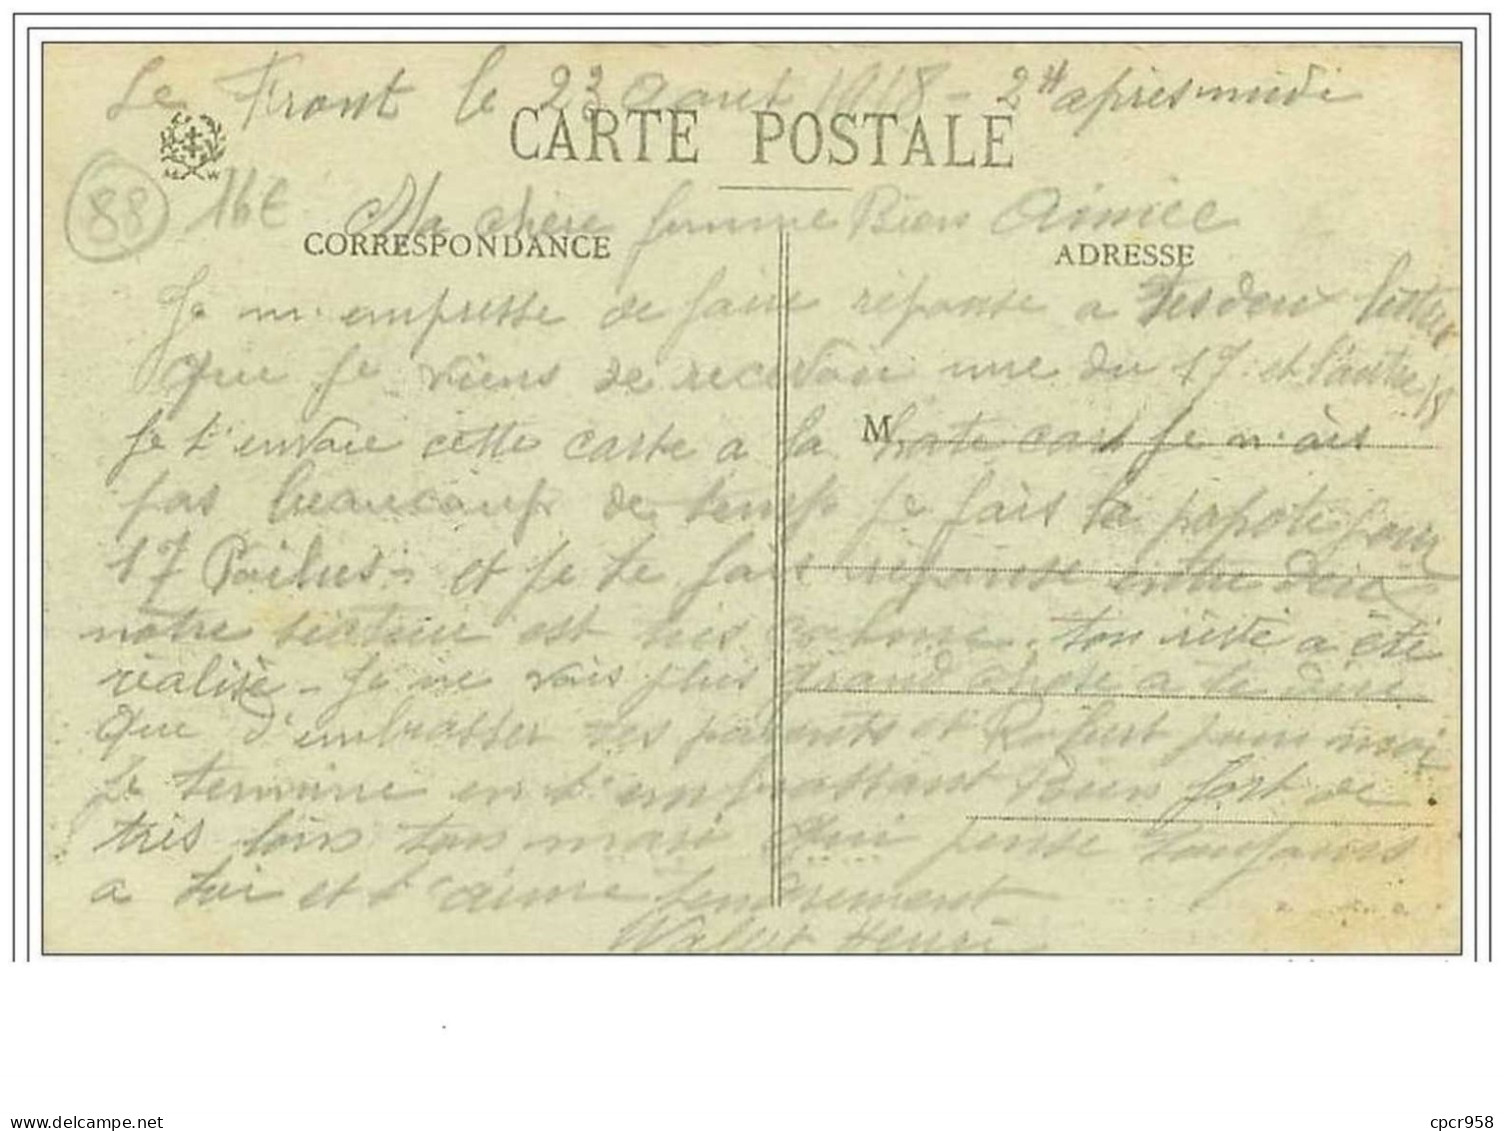 Le Front le 23 Aout 1918 - 2H après midi
CARTE POSTALE
88
16€
Ma chère femme Bien Aimiee
CORRESPONDANCE
ADRESSE
Je m'empresse de faire réponse a tes deux lettres
que je viens de recevoir une du 17 et l'autre 18
Je t'envoie cette carte a la hate car je n'ais
M
pas beaucoup de temp je fais la popote pour
17 Poilus - et je te fais réponse entre deux
notre secteur est très calme. ton rêve a été
réalisé - Je ne vois plus grand chose a te dire
que d'embrasser tes parents et Robert pour moi
Je termine en t'embrassant Bien fort de
très loin ton mari qui pense toujours
a toi et t'aime tendrement
Henri
delcampe.net
cpcr958